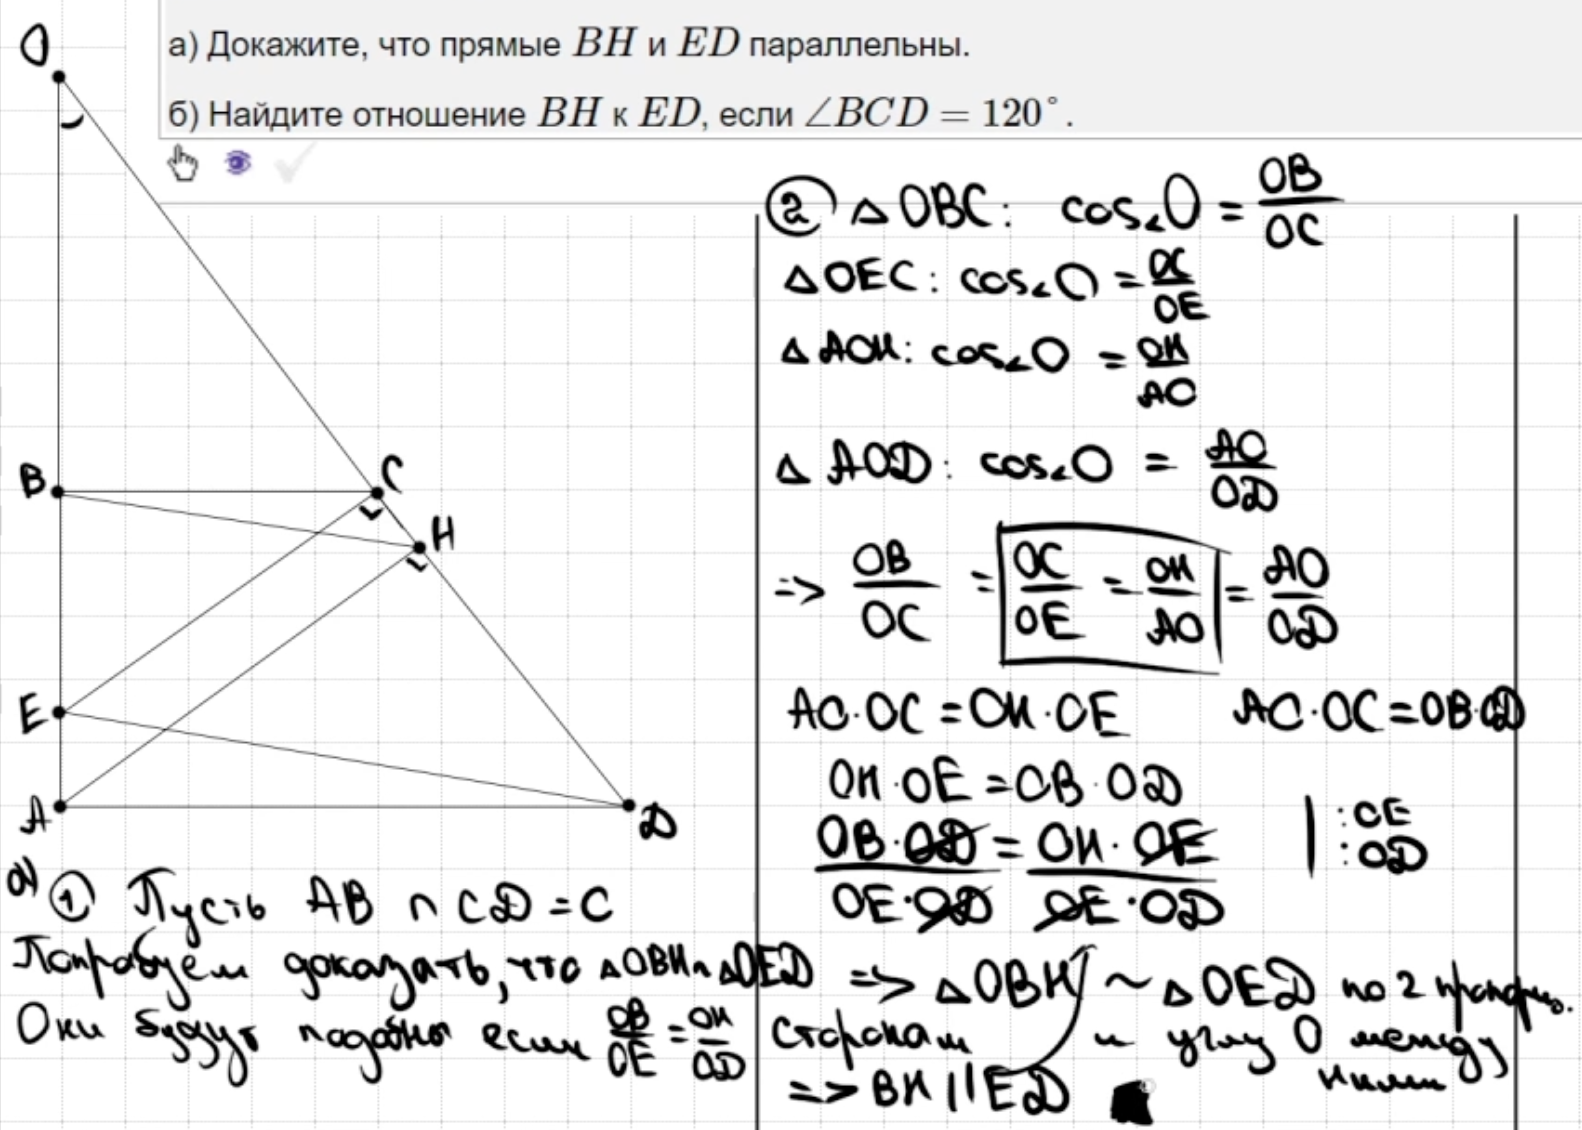 а) Докажите, что прямые BH и ED параллельны.
б) Найдите отношение BH к ED, если ∠BCD = 120°.
O
B
C
H
E
A
D
а) ① Пусть AB ∩ CD = C
Попробуем доказать, что △OBH ~ △OED
Они будут подобны если OB/OE = OH/OD
② △OBC: cos∠O = OB/OC
△OEC: cos∠O = OC/OE
△AOH: cos∠O = OH/AO
△AOD: cos∠O = AO/OD
=> OB/OC = OC/OE = OH/AO = AO/OD
AO·OC = OH·OE AO·OC = OB·OD
OH·OE = OB·OD
OB·OD/OE·OD = OH·OE/OE·OD | :OE :OD
=> △OBH ~ △OED по 2 пропорц.
сторонам и углу O между
ними
=> BH || ED